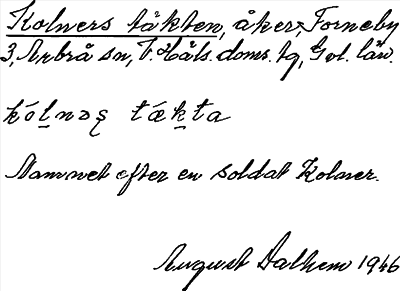 Kolners täkten, åker, Forneby
3, Arbrå sn, V. Häls. doms. tg, Gvl. län.
kólnəs tǽkta
Namnet efter en soldat Kolner.
August Dalhem 1946